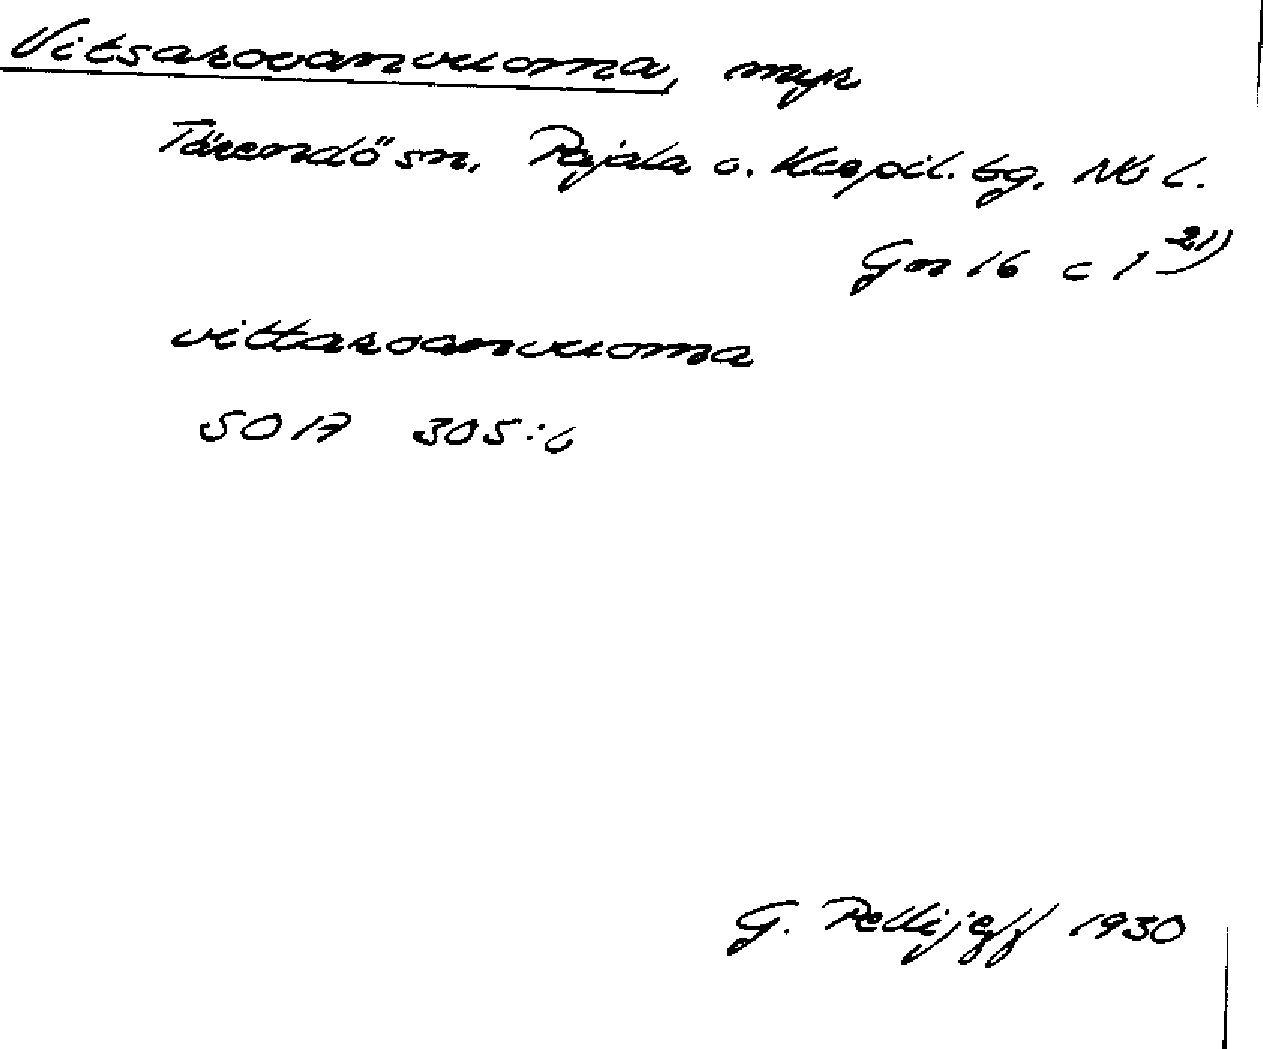 Vitsarovanvuoma, myr
Tärendö sn. Pajala o. Korpil. tg. Nb l.
Gm 16 c 1 21)
vittaroanvuoma
SOA 305:6
G. Pellijeff 1930